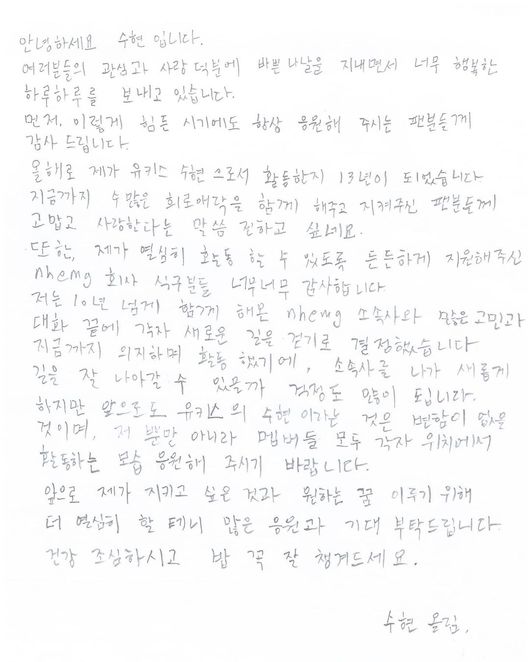 안녕하세요 수현 입니다.
여러분들의 관심과 사랑 덕분에 바쁜 나날을 지내면서 너무 행복한
하루하루를 보내고 있습니다.
먼저, 이렇게 힘든 시기에도 항상 응원해 주시는 팬분들께
감사 드립니다.
올해로 제가 유키스 수현 으로서 활동한지 13년이 되었습니다
지금까지 수많은 희로애락을 함께 해주고 지켜주신 팬분들께
고맙고 사랑한다는 말씀 전하고 싶네요.
또한, 제가 열심히 활동 할 수 있도록 든든하게 지원해주신
nhemg 회사 식구분들 너무너무 감사합니다
저는 10년 넘게 함께 해온 nhemg 소속사와 많은 고민과
대화 끝에 각자 새로운 길을 걷기로 결정했습니다
지금까지 의지하며 활동 했었기에, 소속사를 나가 새롭게
길을 잘 나아갈 수 있을까 걱정도 많이 됩니다.
하지만 앞으로도 유키스의 수현 이라는 것은 변함이 없을
것이며, 저 뿐만 아니라 멤버들 모두 각자 위치에서
활동하는 모습 응원해 주시기 바랍니다.
앞으로 제가 지키고 싶은 것과 원하는 꿈 이루기 위해
더 열심히 할 테니 많은 응원과 기대 부탁드립니다
건강 조심하시고 밥 꼭 잘 챙겨드세요.
수현 올림.